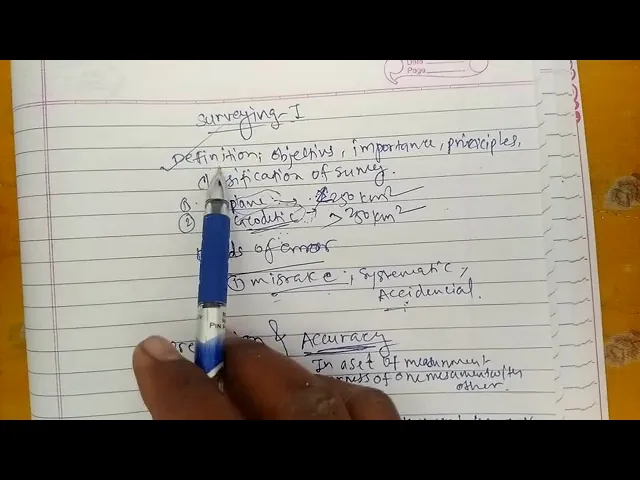 Date
Page
Surveying-I
Definition; objectives, importance, principles,
sification of survey.
plane → <250 km²
Geodetic → > 250 km²
ds of error
(i) mistake, systematic,
Accidencial.
& Accuracy
In a set of measurment
ness of one mesarment
other.